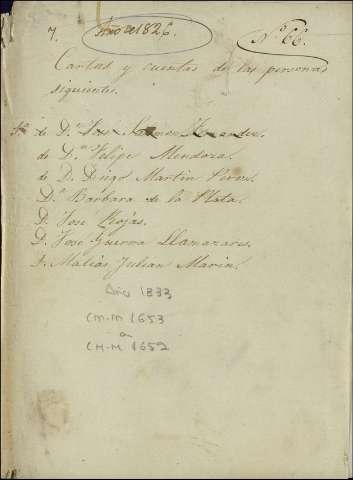 7. Año de 1826. N.º 66.
Cartas y cuentas de las personas
siguientes.
de D.n José Hernandez.
de D.n Felipe Mendoza.
de D. Diego Martin Perez.
D.ª Bárbara de la Plata.
D. José Rojas.
D. José Guerra Llamazares.
D. Matías Julian Marin.
Año 1833
CM-M 1653
a
CM-M 1652